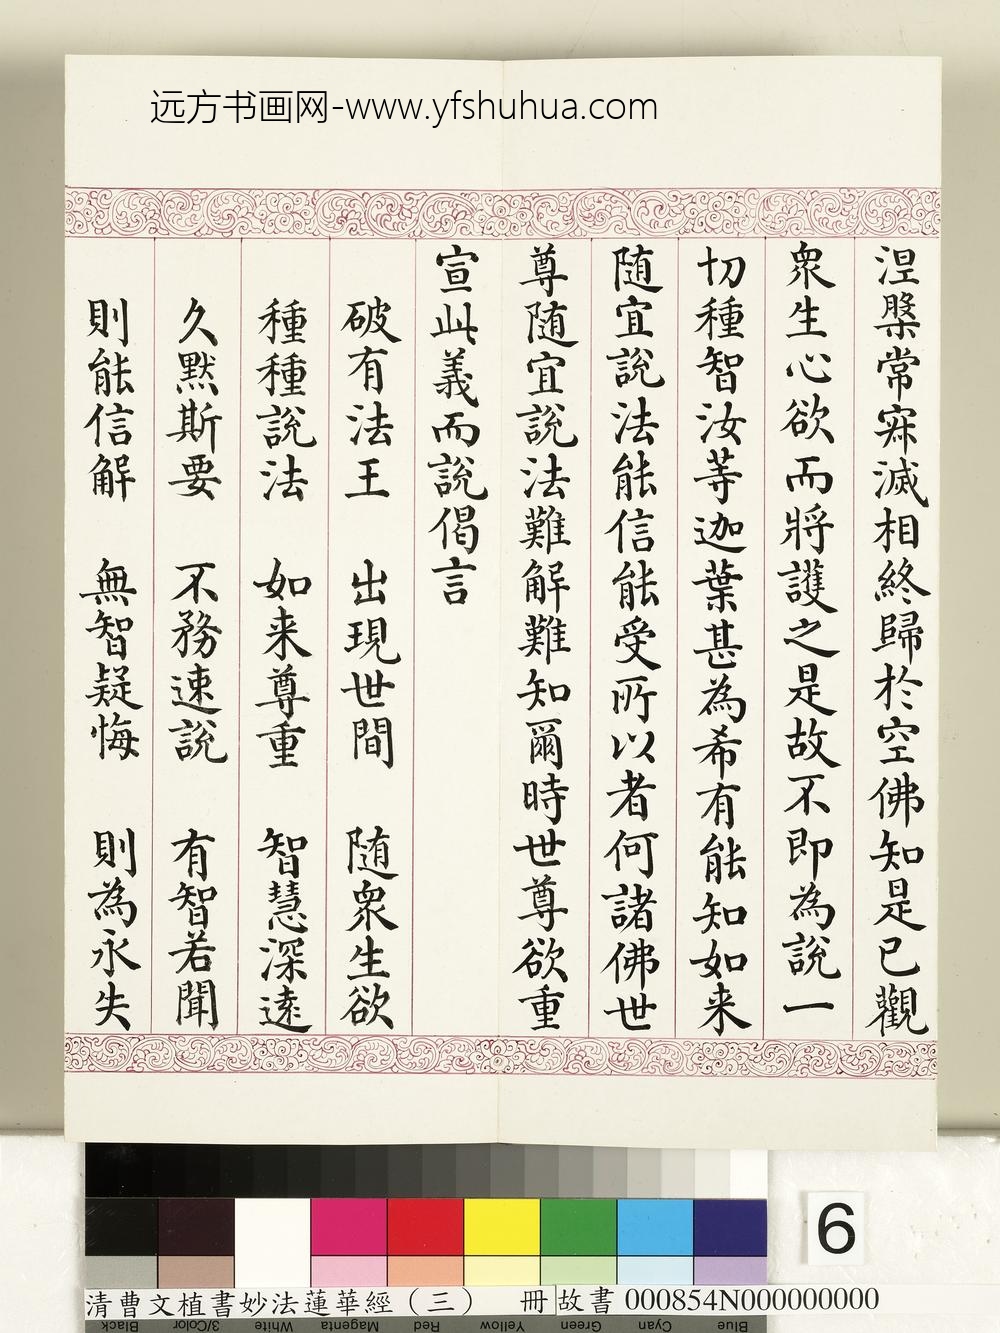 远方书画网-www.yfshuhua.com
涅槃常寂滅相終歸於空佛知是已觀
衆生心欲而將護之是故不即為說一
切種智汝等迦葉甚為希有能知如来
随宜説法能信能受所以者何諸佛世
尊随宜説法難解難知爾時世尊欲重
宣此義而説偈言
破有法王 出現世間 随衆生欲
種種説法 如来尊重 智慧深遠
久默斯要 不務速説 有智若聞
則能信解 無智疑悔 則為永失
6
清曹文植書妙法蓮華經（三） 冊 故書 000854N000000000
Black 3/Color White Magenta Red Yellow Green Cyan Blue